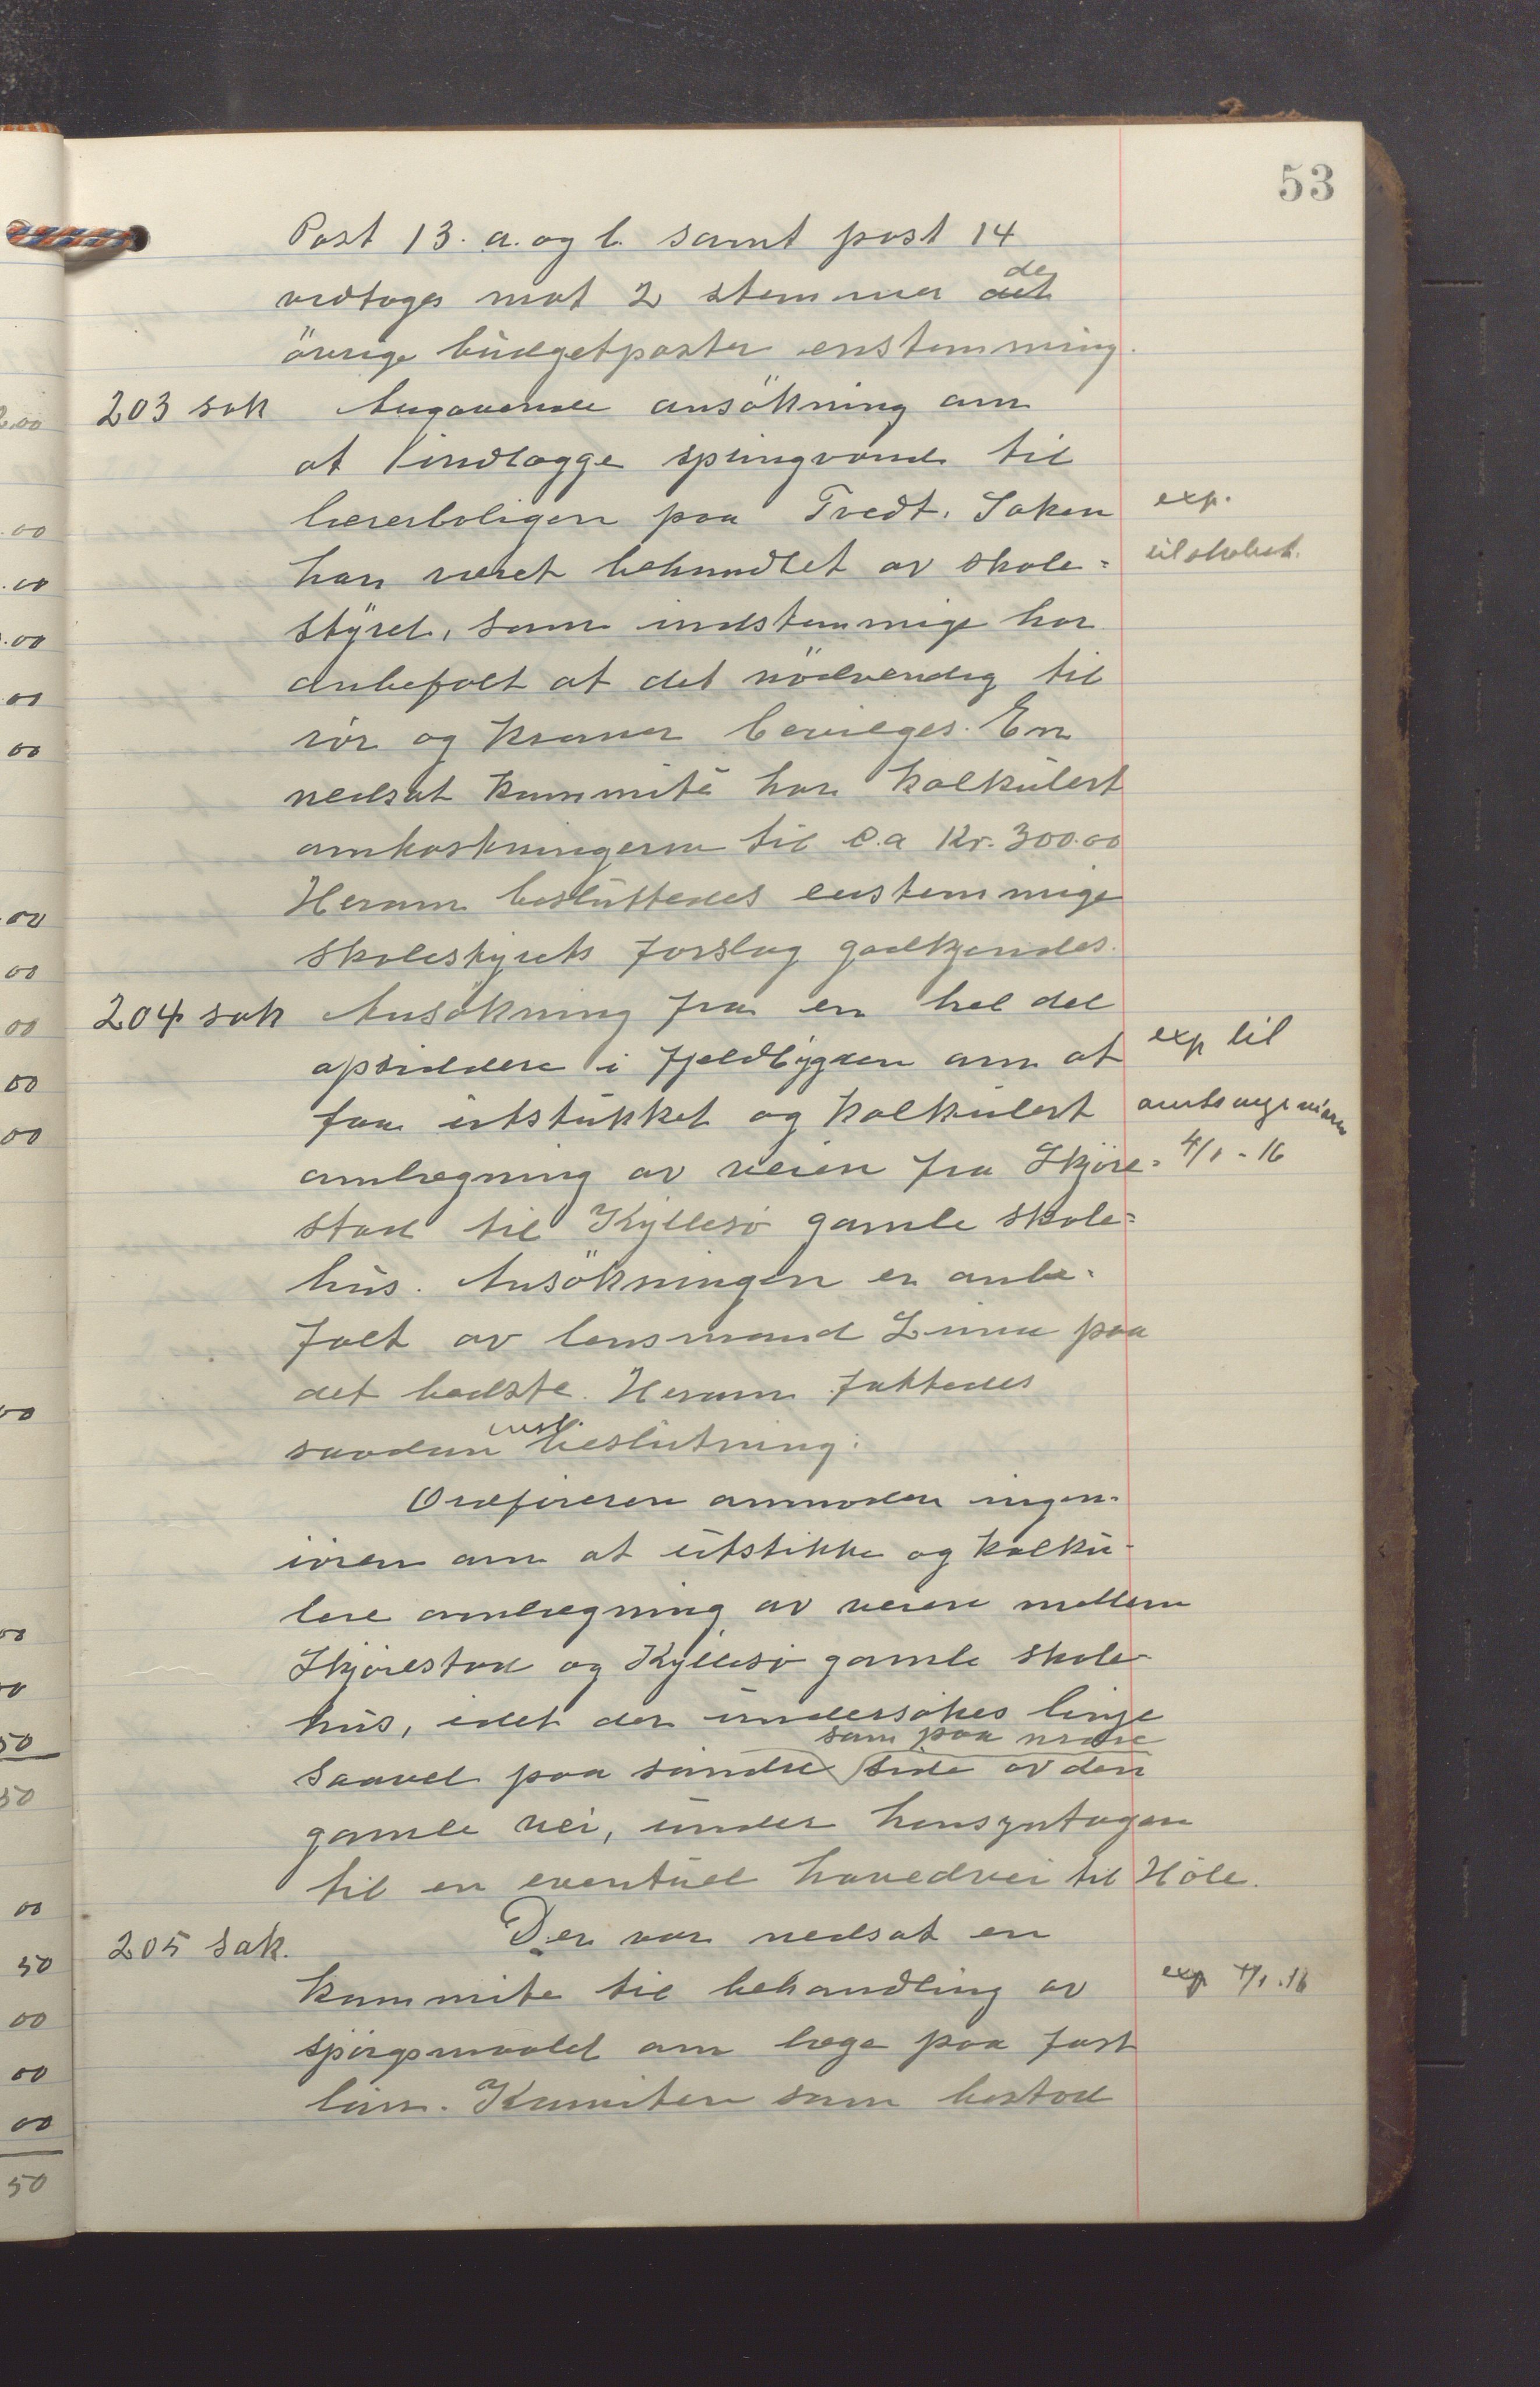 53
Post 13. a. og b. samt post 14
vedtages mot 2 stemmer det de
övrige budgetposter enstemming.
203 sak Angaaende ansökning om
at indlægge springvand til
lærerboligen paa Tvedt. Saken
exp.
har været behandlet av skole=
til skolest.
styret, som indstemmige har
anbefalt at det nödvendig til
rör og kraner bevilges. En
nedsat kommité har kalkulert
omkostningerne til c.a Kr. 300.00
Herom besluttedes enstemmige
skolestyrets forslag godkjendes.
204 sak Ansökning fra en hel del
opsiddere i Fjeldbygden om at
exp til
faa utstukket og kalkulert
amtsingeniøren
omlægning av veien fra Skjöre=
4/1 - 16
stad til Kyllesö gamle skole=
hus. Ansökningen er anbe=
falt av lensmand Lima paa
det bedste. Herom fattedes
saadan enst. beslutning:
Ordföreren anmoder ingen=
iören om at utstikke og kalku-
lere omlægning av veien mellem
Skjörestad og Kyllesö gamle skole-
hus, idet der undersökes linje
saavel paa söndre som paa nordre side av den
gamle vei, under hensyntagen
til en eventuel hovedvei til Höle.
205 sak. Der var nedsat en
kommite til behandling av
exp 4/1.16
spörgsmaalet om læge paa fast
lön. Komiteen som bestod